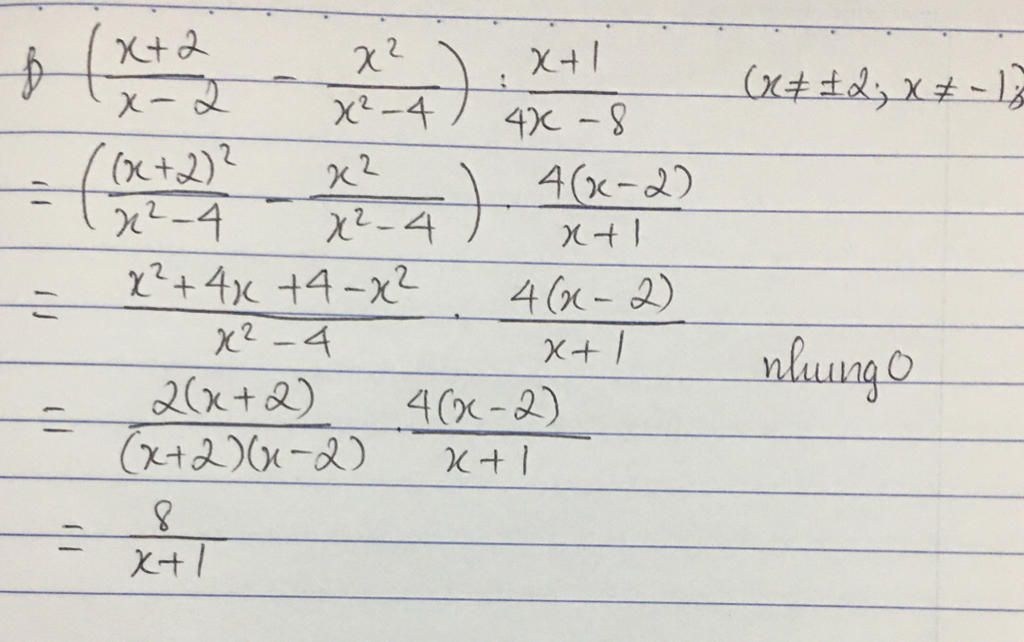 f) ((x+2)/(x-2) - x²/(x²-4)) : (x+1)/(4x-8) (x≠±2; x≠-1)
= ((x+2)²/(x²-4) - x²/(x²-4)) . 4(x-2)/(x+1)
= (x²+4x+4-x²)/(x²-4) . 4(x-2)/(x+1)
nhung0
= 2(x+2)/((x+2)(x-2)) . 4(x-2)/(x+1)
= 8/(x+1)